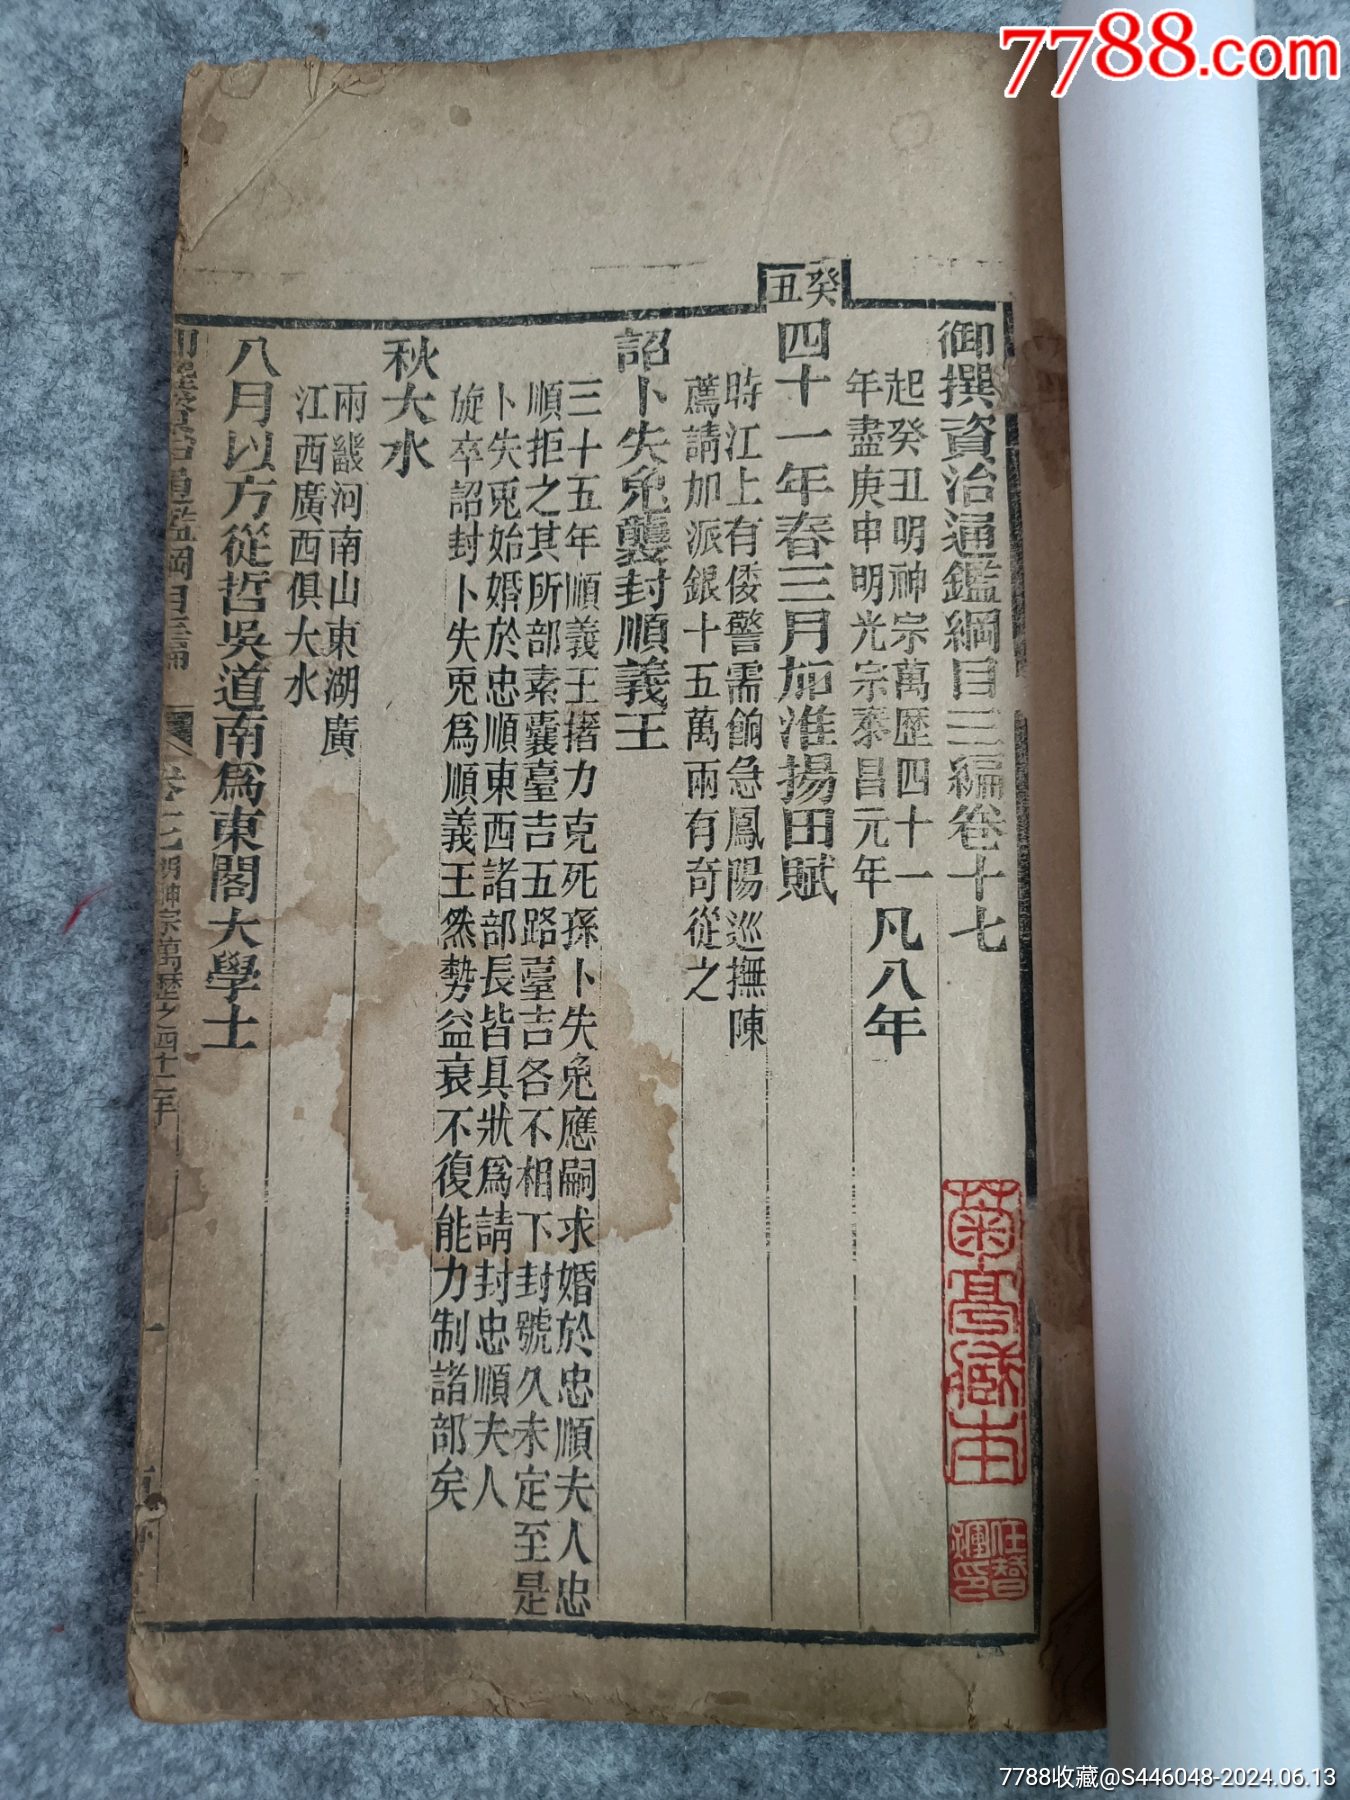 7788.com
癸丑
御撰資治通鑑綱目三編卷十七
起癸丑明神宗萬歷四十一
年盡庚申明光宗泰昌元年
凡八年
四十一年春三月加淮揚田賦
時江上有倭警需餉急鳳陽巡撫陳
薦請加派銀十五萬兩有奇從之
詔卜失兔襲封順義王
三十五年順義王撦力克死孫卜失兔應嗣求婚於忠順夫人忠
順拒之其所部素囊臺吉五路臺吉各不相下封號久未定至是
卜失兔始婚於忠順東西諸部長皆具狀爲請封忠順夫人
旋卒詔封卜失兔爲順義王然勢益衰不復能力制諸部矣
秋大水
兩畿河南山東湖廣
江西廣西俱大水
八月以方從哲吳道南爲東閣大學士
通鑑綱目三編
卷十七
明神宗萬歷之四十一年
一
菊亭藏本
7788收藏@S446048-2024.06.13